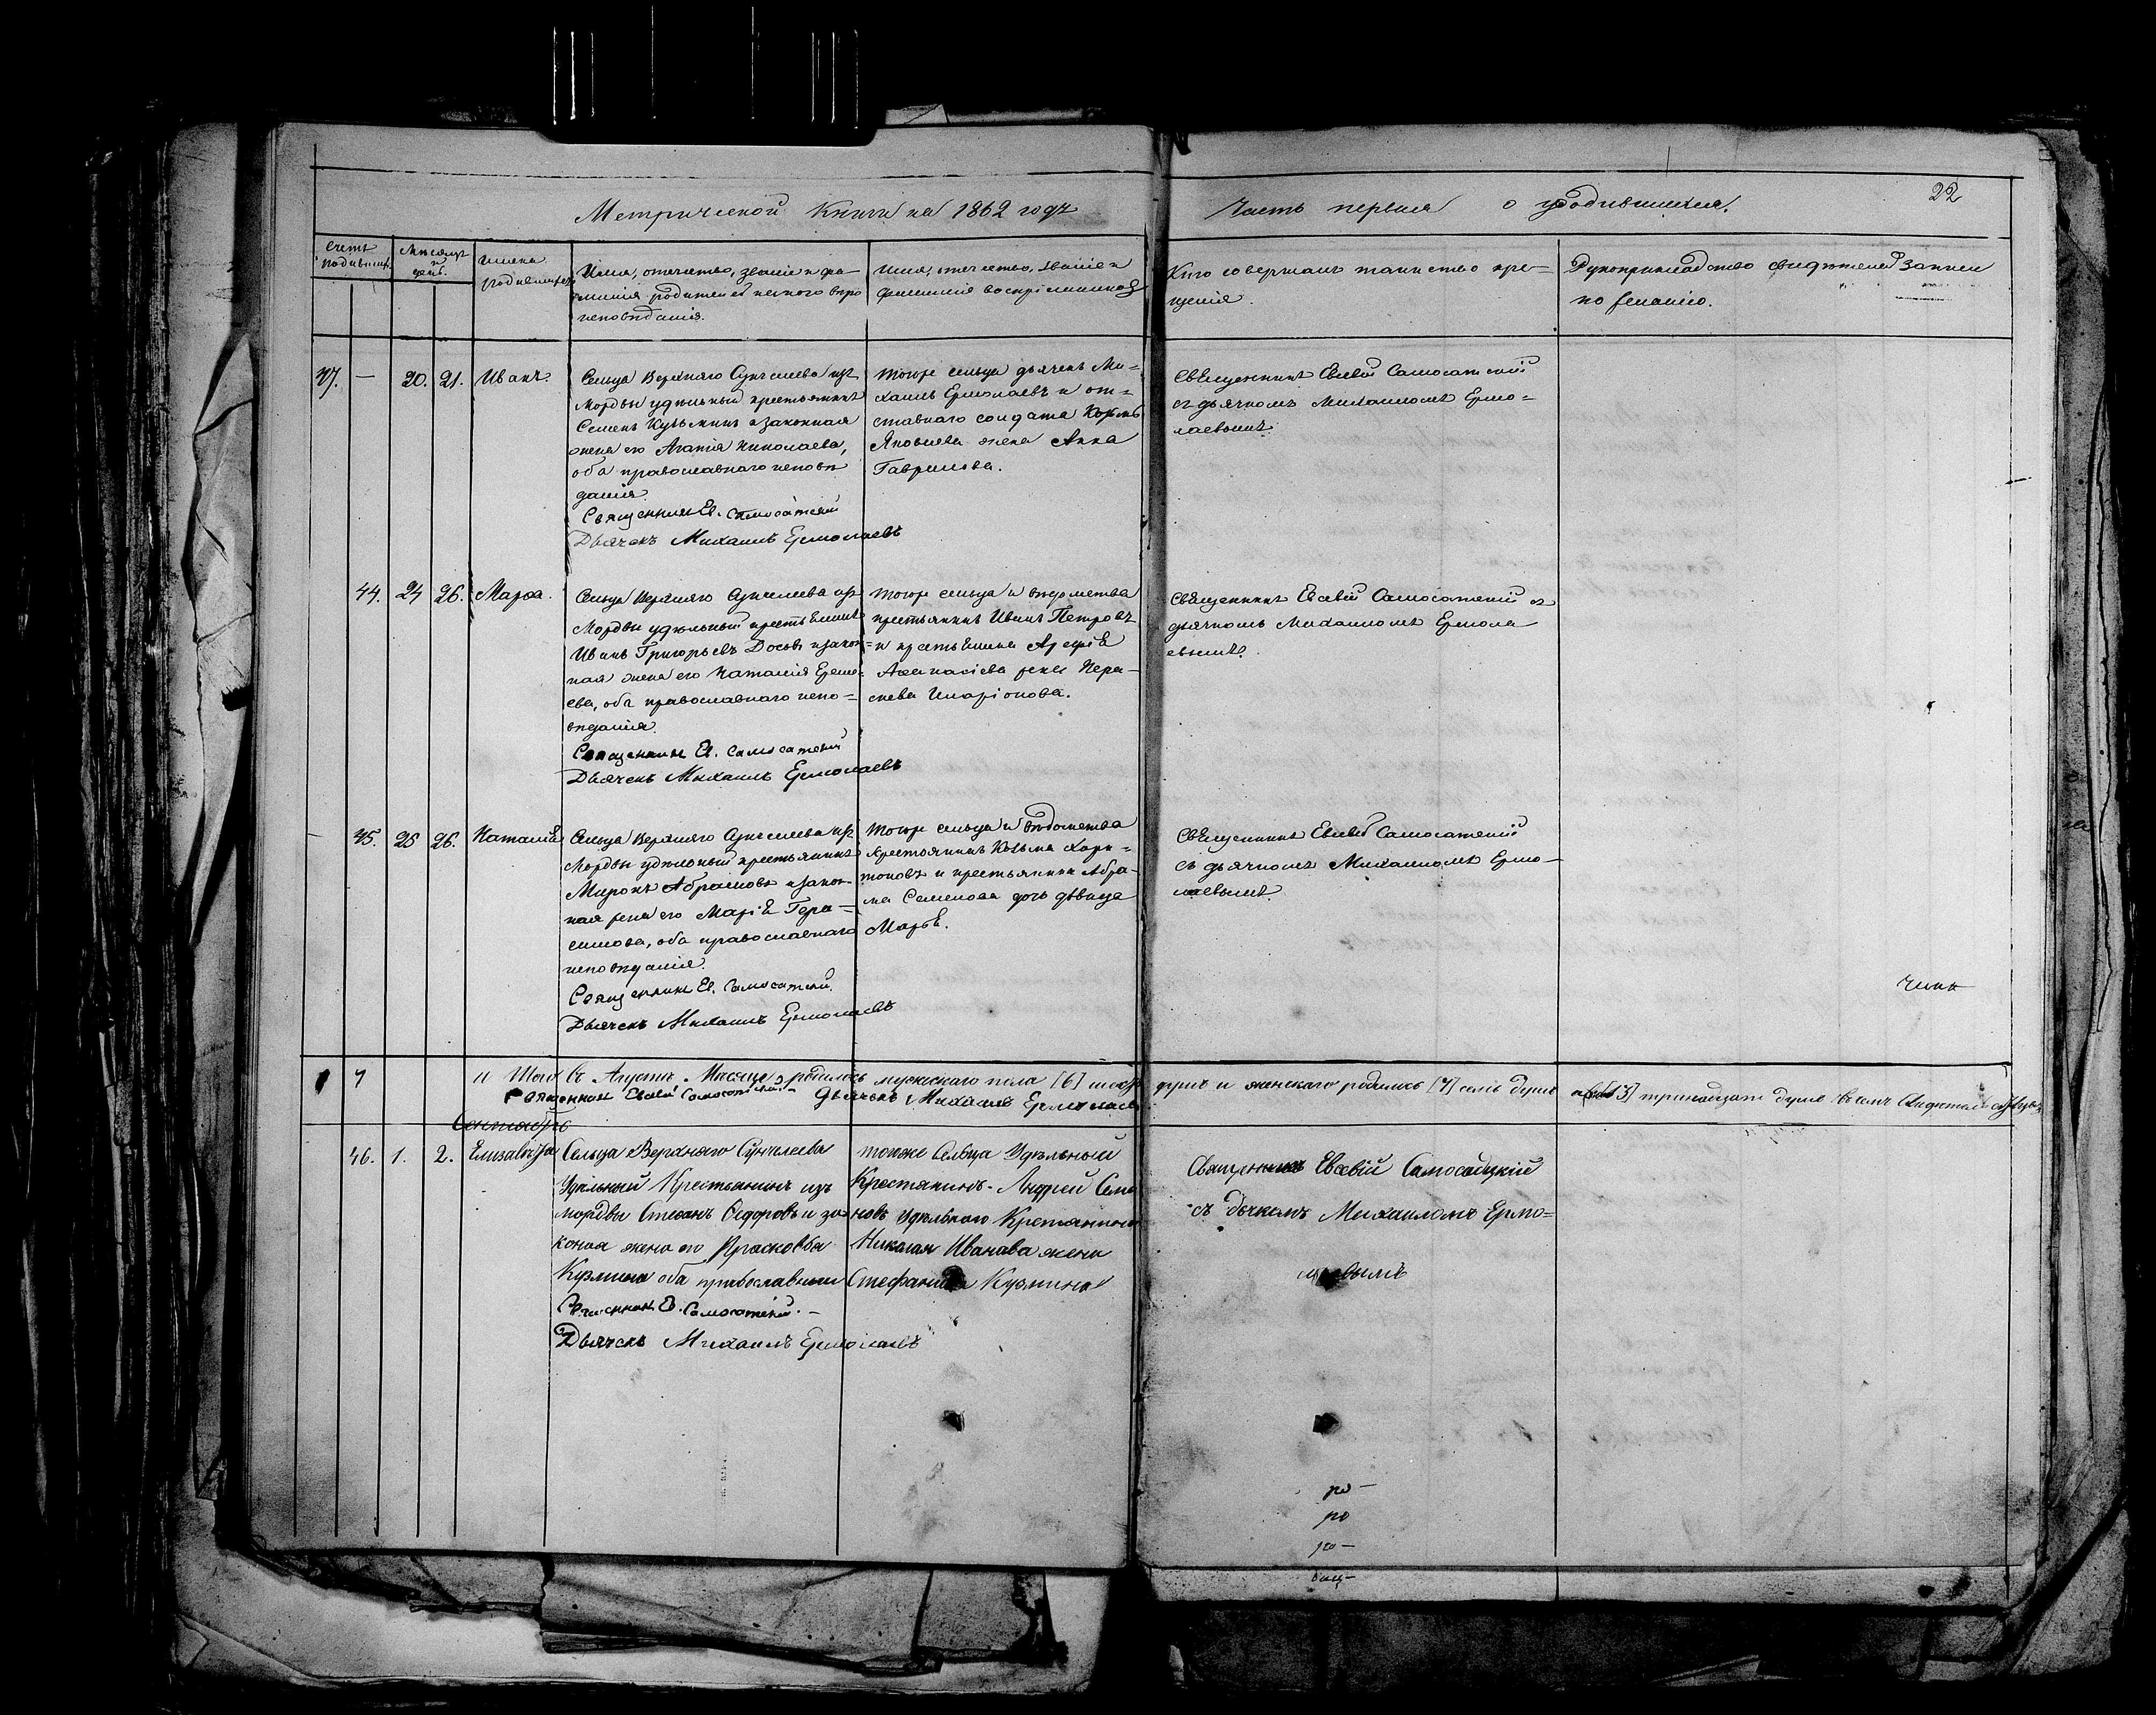 Метрической книги на 1862 годъ
Часть первая о родившихся.
22
Счетъ родившихся
Мѣсяцъ и день.
Имена родившихся
Имя, отчество, званіе и фа-
милія родителей и какого вѣро
исповѣданія.
Имя, отчество, званіе и
фамилія воспріемниковъ
Кто совершалъ таинство кре-
щенія.
Рукоприкладство свидѣтелей записи
по желанію.
37. — 20. 21. Иванъ.
Сельца Верхняго Сунчелеева изъ
Мордвы удѣльный крестьянинъ
Семенъ Кузьминъ и законная
жена его Агапія Николаева,
оба православнаго исповѣ
данія.
Священникъ Ев. Самосатскій
Дьячекъ Михаилъ Ермолаевъ
Тогоже сельца дьячекъ Ми-
хаилъ Ермолаевъ и от-
ставнаго солдата
Яковлева жена Анна
Гаврилова.
Священникъ Евсевій Самосатскій
съ дьячкомъ Михаиломъ Ермо-
лаевымъ.
44. 24 26. Марѳа.
Сельца Верхняго Сунчелеева изъ
Мордвы удѣльный крестьянинъ
Иванъ Григорьевъ и закон-
ная жена его Наталія Ереме-
ева, оба православнаго испо-
вѣданія.
Священникъ Ев. Самосатскій
Дьячекъ Михаилъ Ермолаевъ
Тогоже сельца и вѣдомства
крестьянинъ Иванъ Петровъ
и крестьянина Арефія
Аѳанасіева жена Пара-
скева Иларіонова.
Священникъ Евсевій Самосатскій съ
дьячкомъ Михаиломъ Ермола
евымъ.
45. 25 26. Наталія
Сельца Верхняго Сунчелеева изъ
Мордвы удѣльный крестьянинъ
Миронъ Абрамовъ и закон-
ная жена его Марія Гера-
симова, оба православнаго
исповѣданія.
Священникъ Ев. Самосатскій.
Дьячекъ Михаилъ Ермолаевъ
Тогоже сельца и вѣдомства
крестьянинъ Козьма Хари-
тоновъ и крестьянина Абра-
ма Семенова дочь дѣвица
Марья.
Священникъ Евсевій Самосатскій
съ дьячкомъ Михаиломъ Ермо-
лаевымъ.
7 Итого Въ Августѣ Мѣсяцѣ родилось мужскаго пола [6] шесть душъ и женскаго родилось [7] семь душъ а [13] тринадцать душъ
Священникъ Евсевій Самосатскій. Дьячекъ Михаилъ Ермолаевъ
Сентябрь
46. 1. 2. Елизавета
Сельца Верхняго Сунчелеева
Удѣльный Крестьянинъ изъ
мордвы Степанъ Ѳедоровъ и за-
коная жена его Прасковья
Кузмина оба православныи
Священникъ Ев. Самосатскій. —
Дьячекъ Михаилъ Ермолаевъ
тогоже Сельца Удѣльный
Крестянинъ Андрей Семе
новъ Удѣльнаго Крестянина
Николая Иванава жена
Стефанида Кузмина
Священникъ Евсевій Самосадцкій
съ дьчкомъ Михаиломъ Ермо=
лаевымъ
ро-
ро
ро-